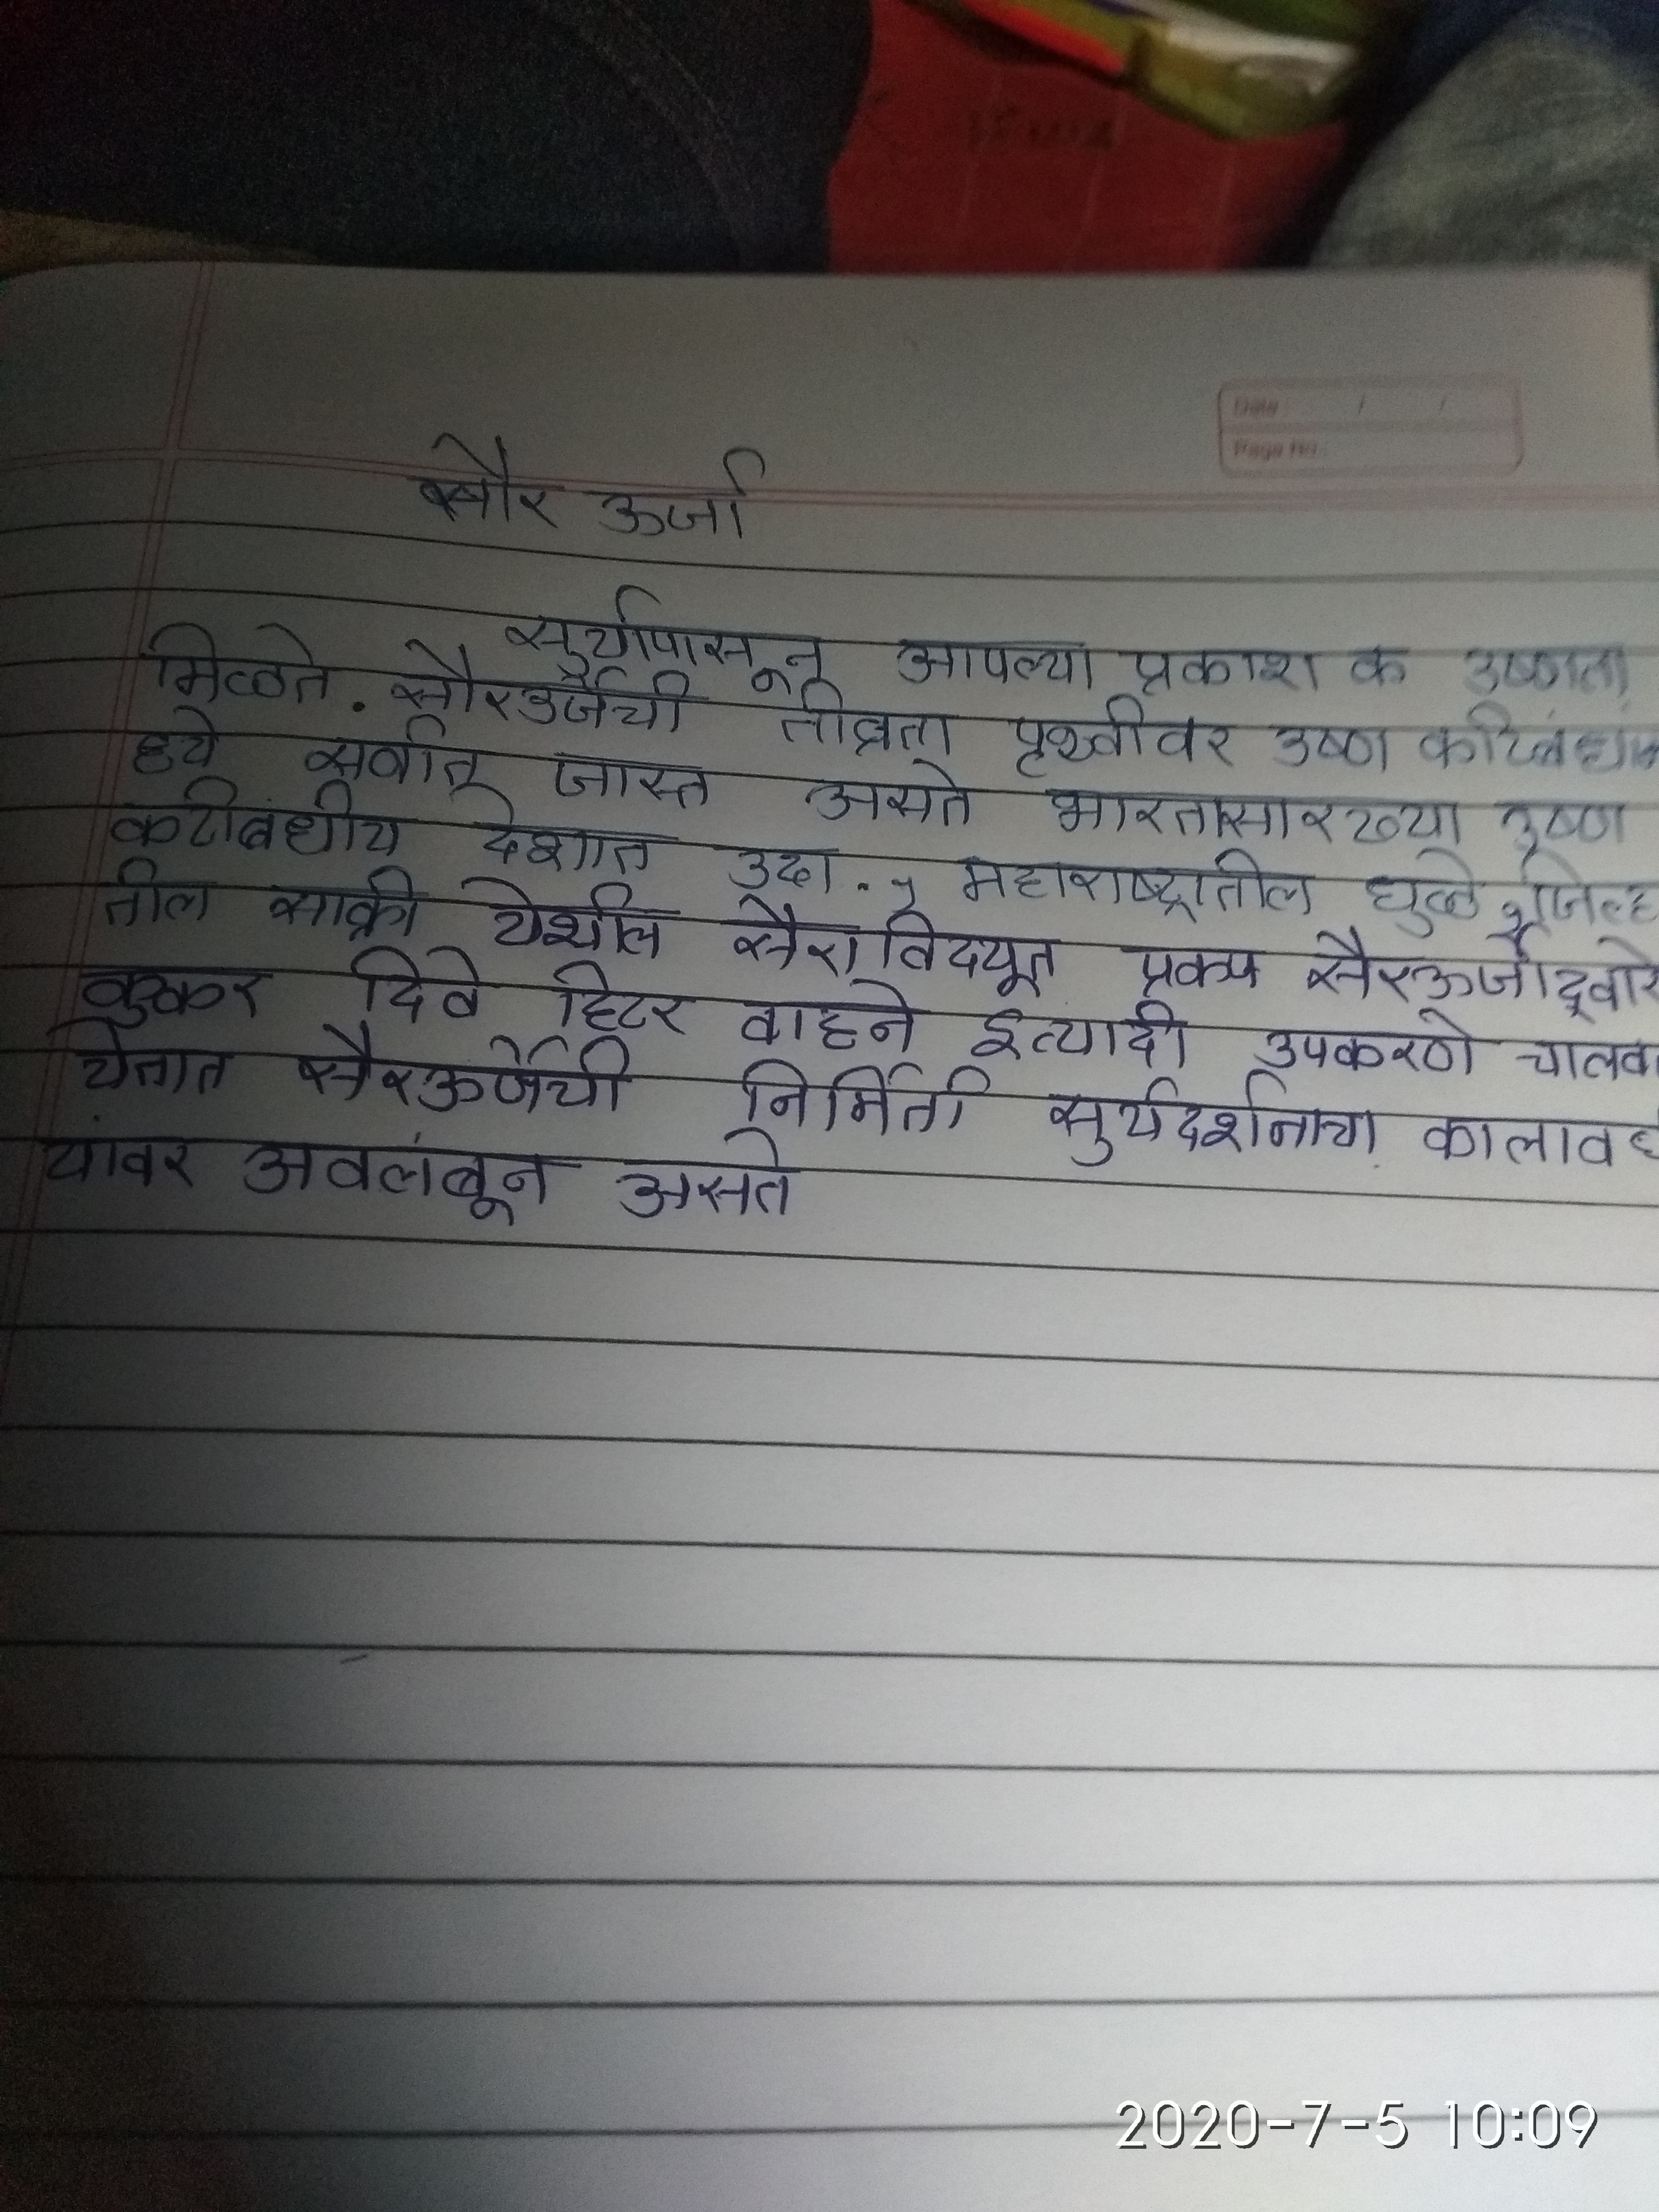 Date / /
Page No.
सौर ऊर्जा
सुर्यापासून आपल्या प्रकाश क उष्णता
मिळते. सौरउर्जेची तीव्रता पृथ्वीवर उष्ण कटिबंधाम
ध्ये सर्वात जास्त असते भारतासारख्या उष्ण
कटीबंधीय देशात उदा., महाराष्ट्रातील धुळे जिल्ह
तील साक्री येथील सैरा विदयूत प्रकप सैरऊर्जाद्वारे
कुकर दिवे हिटर वाहने इत्यादी उपकरणे चालव
येतात सैरऊर्जेची निर्मिती सुर्यदर्शनाचा कालावध
यांवर अवलंबून असते
2020-7-5 10:09